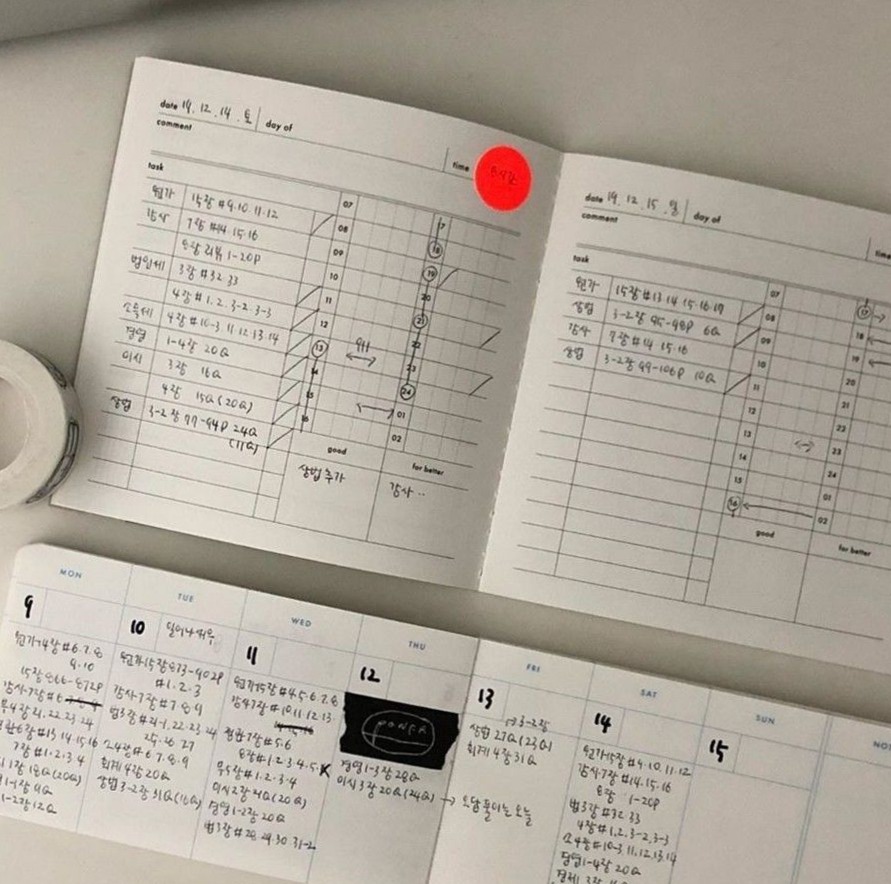 date 19. 12. 14. 토 day of
comment
time
task
원가 15장 #9.10.11.12
감사 7장 #14.15.16
8장 리뷰 1-20P
법인세 3장 #32 33
4장 #1.2.3-2.3-3
소득세 4장 #10-3.11.12.13.14
경영 1-4장 20Q
미시 3장 16Q
4장 15Q(20Q)
상법 3-2장 77-94P 24Q
(11Q)
07
08
09
10
11
12
13
14
15
16
17
18
19
20
21
22
23
24
01
02
good
상법 추가
for better
감사..
date 19. 12. 15. 일 day of
comment
time
task
원가 15장 #13 14 15.16.17
상법 3-2장 95-98P 6Q
감사 7장 #14 15.16
상법 3-2장 99-106P 10Q
07
08
09
10
11
12
13
14
15
16
17
18
19
20
21
22
23
24
01
02
good
for better
MON
9
원가14장 #6.7.8
9.10
15장 866-872P
감사7장 #6.7.8.9
#13 14.15.16
7장 #1.2.3.4
1장 18Q(20Q)
1-1장 9Q
1-2장 12Q
TUE
10
원가15장 873-902P
#1.2.3
감사7장 #7.8.9
법3장 #21-1.22.23.24
25.26 27
소4장 #6.7.8.9
회계 4장 20Q
상법 3-2장 31Q(16Q)
WED
11
원가15장 #4.5.6.7.8
감사7장 #10.11.12.13
14.15.16
7장 #5.6
8장 #1.2.3.4.5
부5장 #1.2.3.4
미시2장 21Q(20Q)
경영 1-2장 20Q
법3장 #28.29.30.31-2
THU
12
POWER
경영 1-3장 28Q
미시 3장 20Q(24Q) → 오답풀이는 오늘
FRI
13
3-2장
상법 27Q(23Q)
회계 4장 31Q
SAT
14
원가15장 #9.10.11.12
감사7장 #14.15.16
8장 1-20P
법3장 #32.33
4장 #1.2.3-2.3-3
소4장 #10-3.11.12.13.14
경영1-4장 20Q
SUN
15